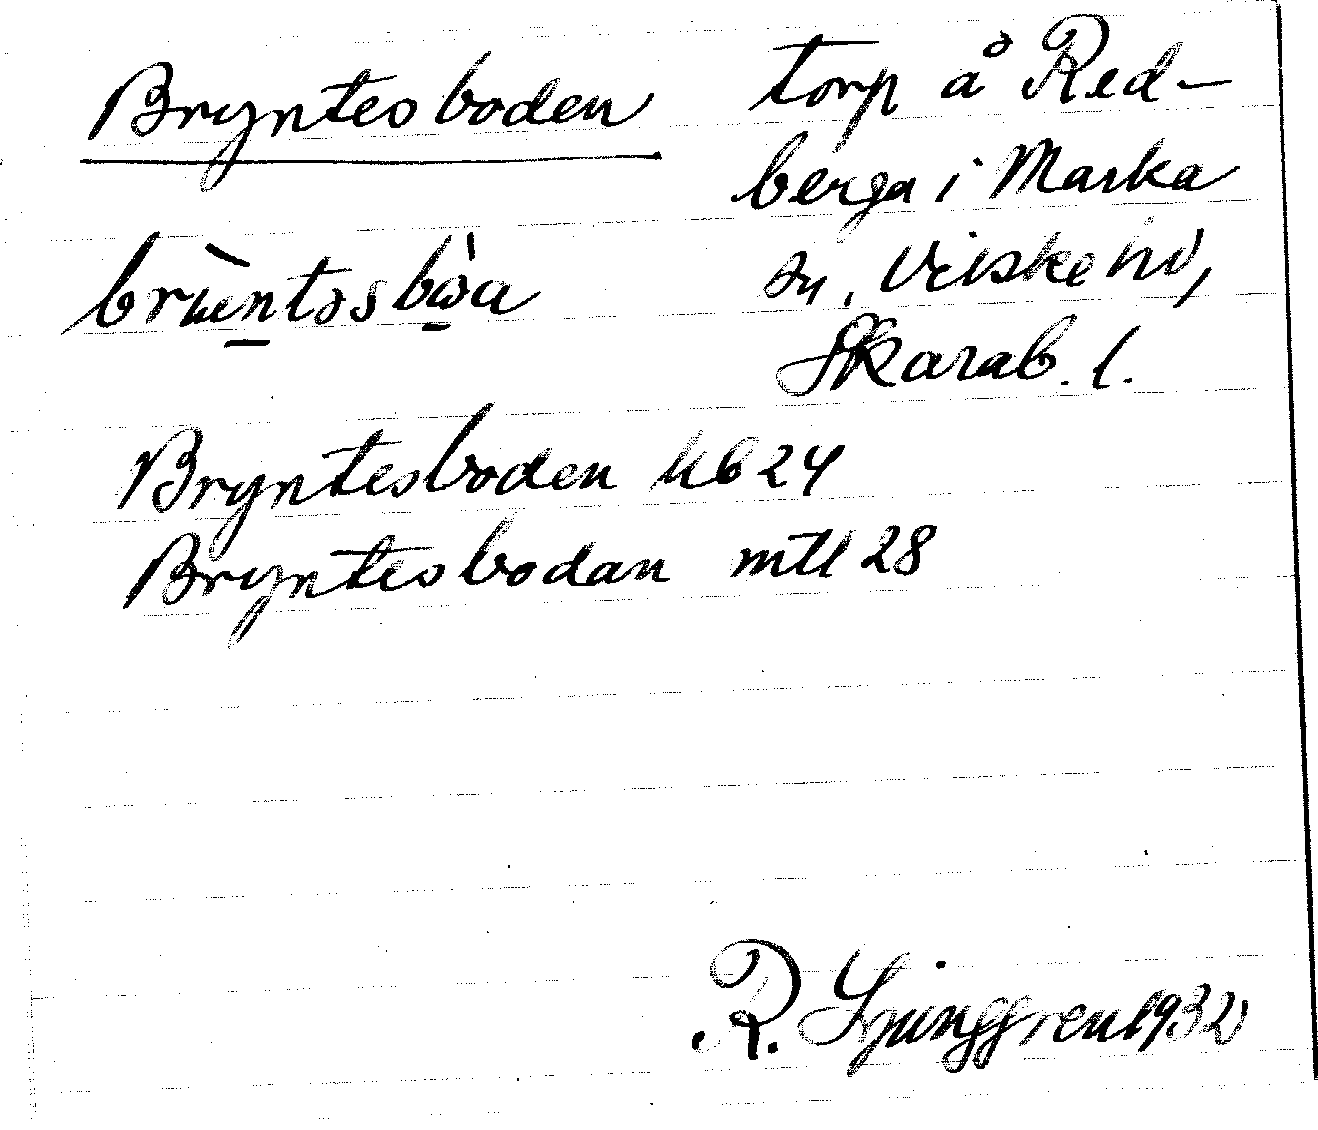 Bryntesboden
torp å Red-
berga i Marka
sn, Vilske hd,
Skarab. l.
Bryntesboden kb 24
Bryntesbodan mtl 28
R. Ljunggren 1932